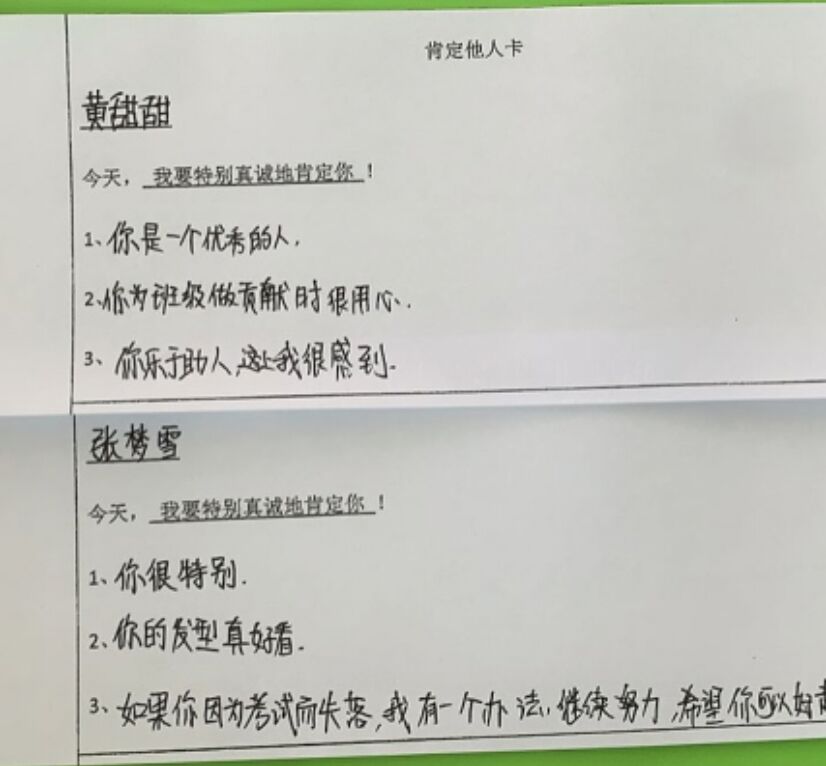 肯定他人卡
黄甜甜
今天，我要特别真诚地肯定你！
1、你是一个优秀的人.
2、你为班级做贡献时很用心.
3、你乐于助人,这让我很感到.
张梦雪
今天，我要特别真诚地肯定你！
1、你很特别.
2、你的发型真好看.
3、如果你因为考试而失落,我有一个办法,继续努力,希望你可以好